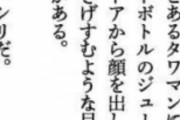 とあるタワマンに
ボトルのジュー
アから顔を出し
さげすむような目
がある。
ンリだ。